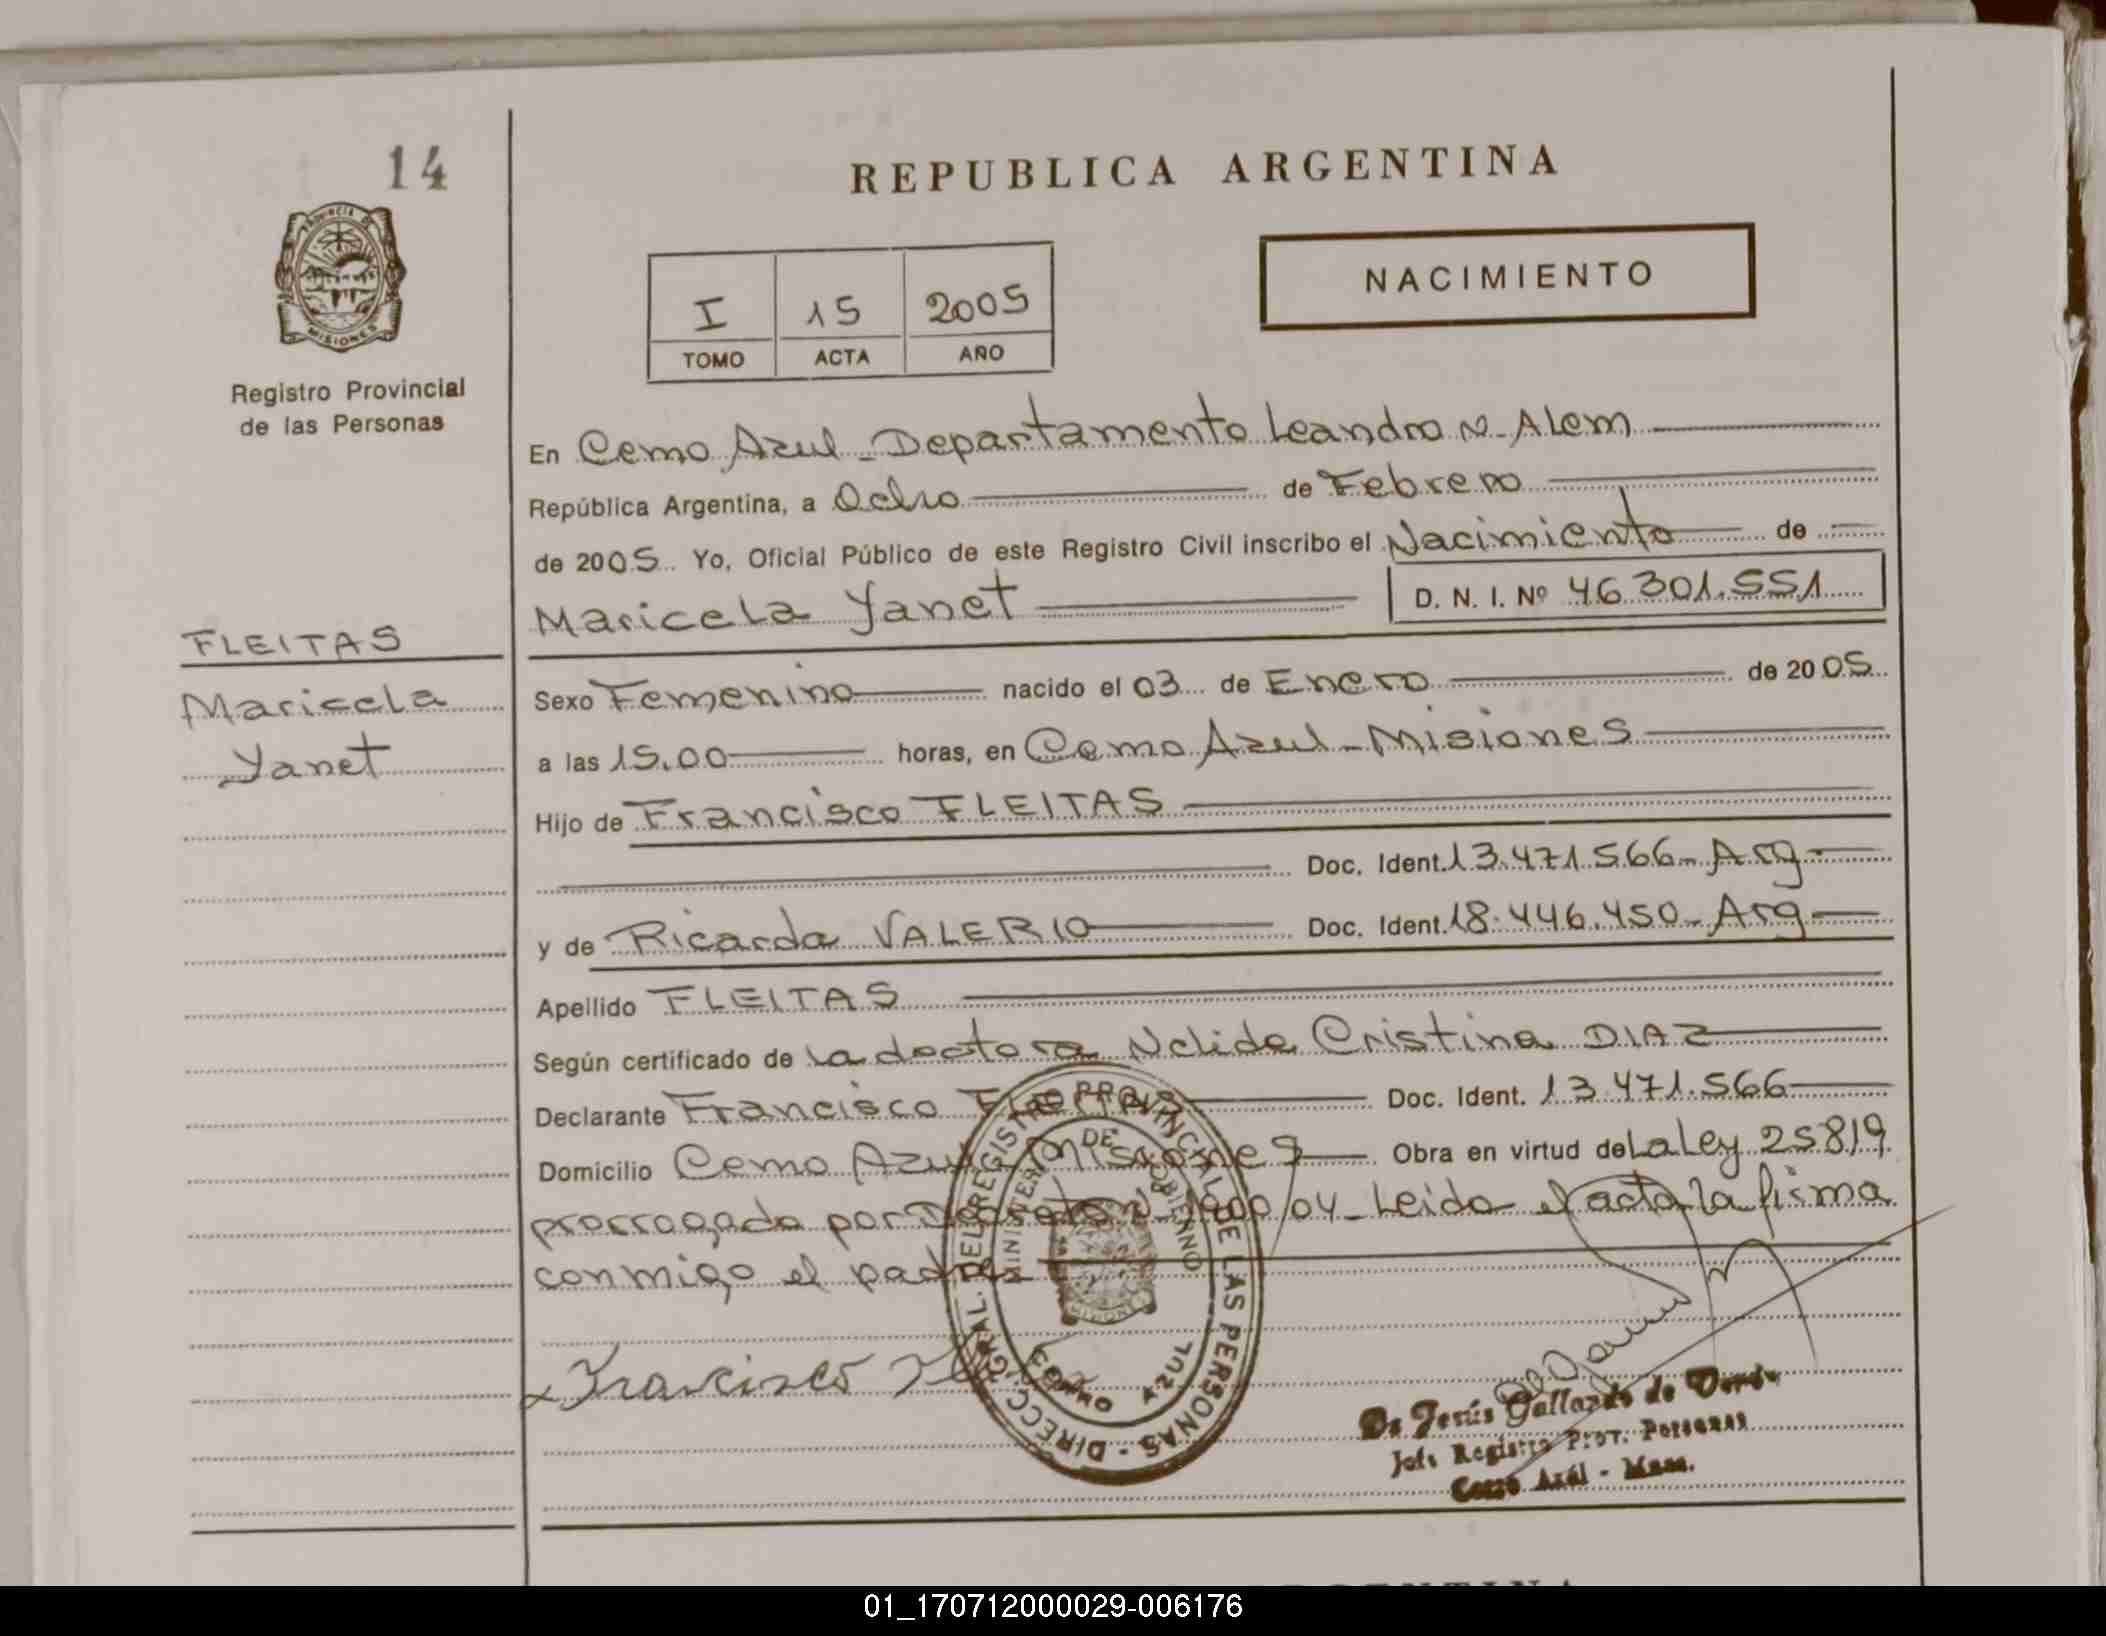 14
REPUBLICA ARGENTINA
PROVINCIA DE
MISIONES
Registro Provincial
de las Personas
NACIMIENTO
I 15 2005
TOMO ACTA AÑO
En Cerro Azul - Departamento Leandro N. Alem
República Argentina, a Ocho de Febrero
de 2005 Yo, Oficial Público de este Registro Civil inscribo el Nacimiento de
Maricela Yanet D. N. I. Nº 46.301.551
FLEITAS
Maricela
Yanet
Sexo Femenino nacido el 03 de Enero de 2005
a las 15.00 horas, en Cerro Azul - Misiones
Hijo de Francisco FLEITAS
Doc. Ident. 13.471.566 - Arg
y de Ricarda VALERIO Doc. Ident. 18.446.450 - Arg
Apellido FLEITAS
Según certificado de la doctora Nelida Cristina DIAZ
Declarante Francisco Doc. Ident. 13.471.566
Domicilio Cerro Azul Misiones Obra en virtud de La Ley 25819
prorrogada por Decreto N /04 - Leida el acta la firma
conmigo el padre
Francisco
DIRECC. GRAL. DEL REGISTRO PROVINCIAL DE LAS PERSONAS
MINISTERIO DE GOBIERNO
CERRO AZUL
De Jesús Gallardo de
Jefe Registro Prov. Personas
Cerro Azul - Mnes.
01_170712000029-006176